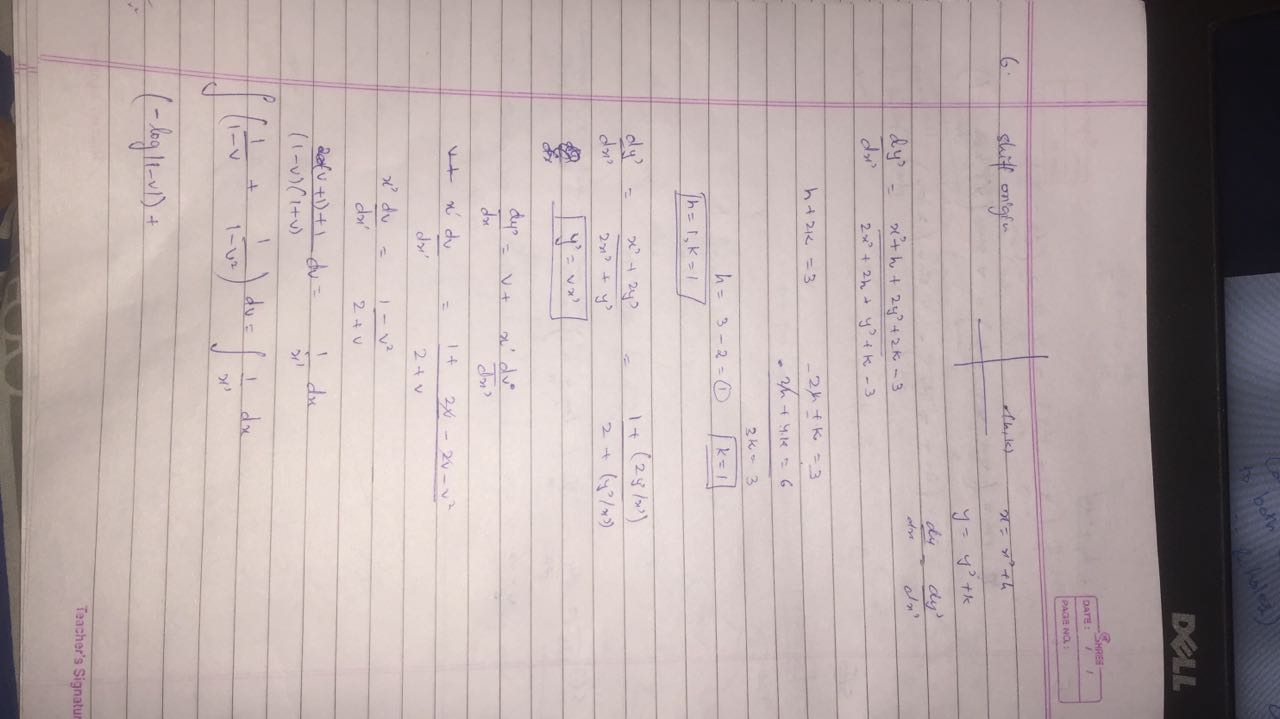 SHREE
DATE: / /
PAGE NO.:
6. shift origin (h,k) x = x'+h
y = y'+k
dy/dx = dy'/dx'
dy'/dx' = (x'+h + 2y'+2k -3)/(2x'+2h + y'+k -3)
h+2k = 3 2h+k = 3
2h+4k = 6
3k = 3
h = 3-2 = 1 k=1
h=1, k=1
dy'/dx' = (x'+2y')/(2x'+y') = (1+(2y'/x'))/(2+(y'/x'))
y' = vx'
dy'/dx = v + x' dv/dx'
v + x' dv/dx' = (1+2v-2v-v²)/(2+v)
x' dv/dx' = (1-v²)/(2+v)
((v+1)+1)/((1-v)(1+v)) dv = 1/x' dx
∫(1/(1-v) + 1/(1-v²)) dv = ∫ 1/x' dx
(-log|1-v|) +
Teacher's Signatur
DELL